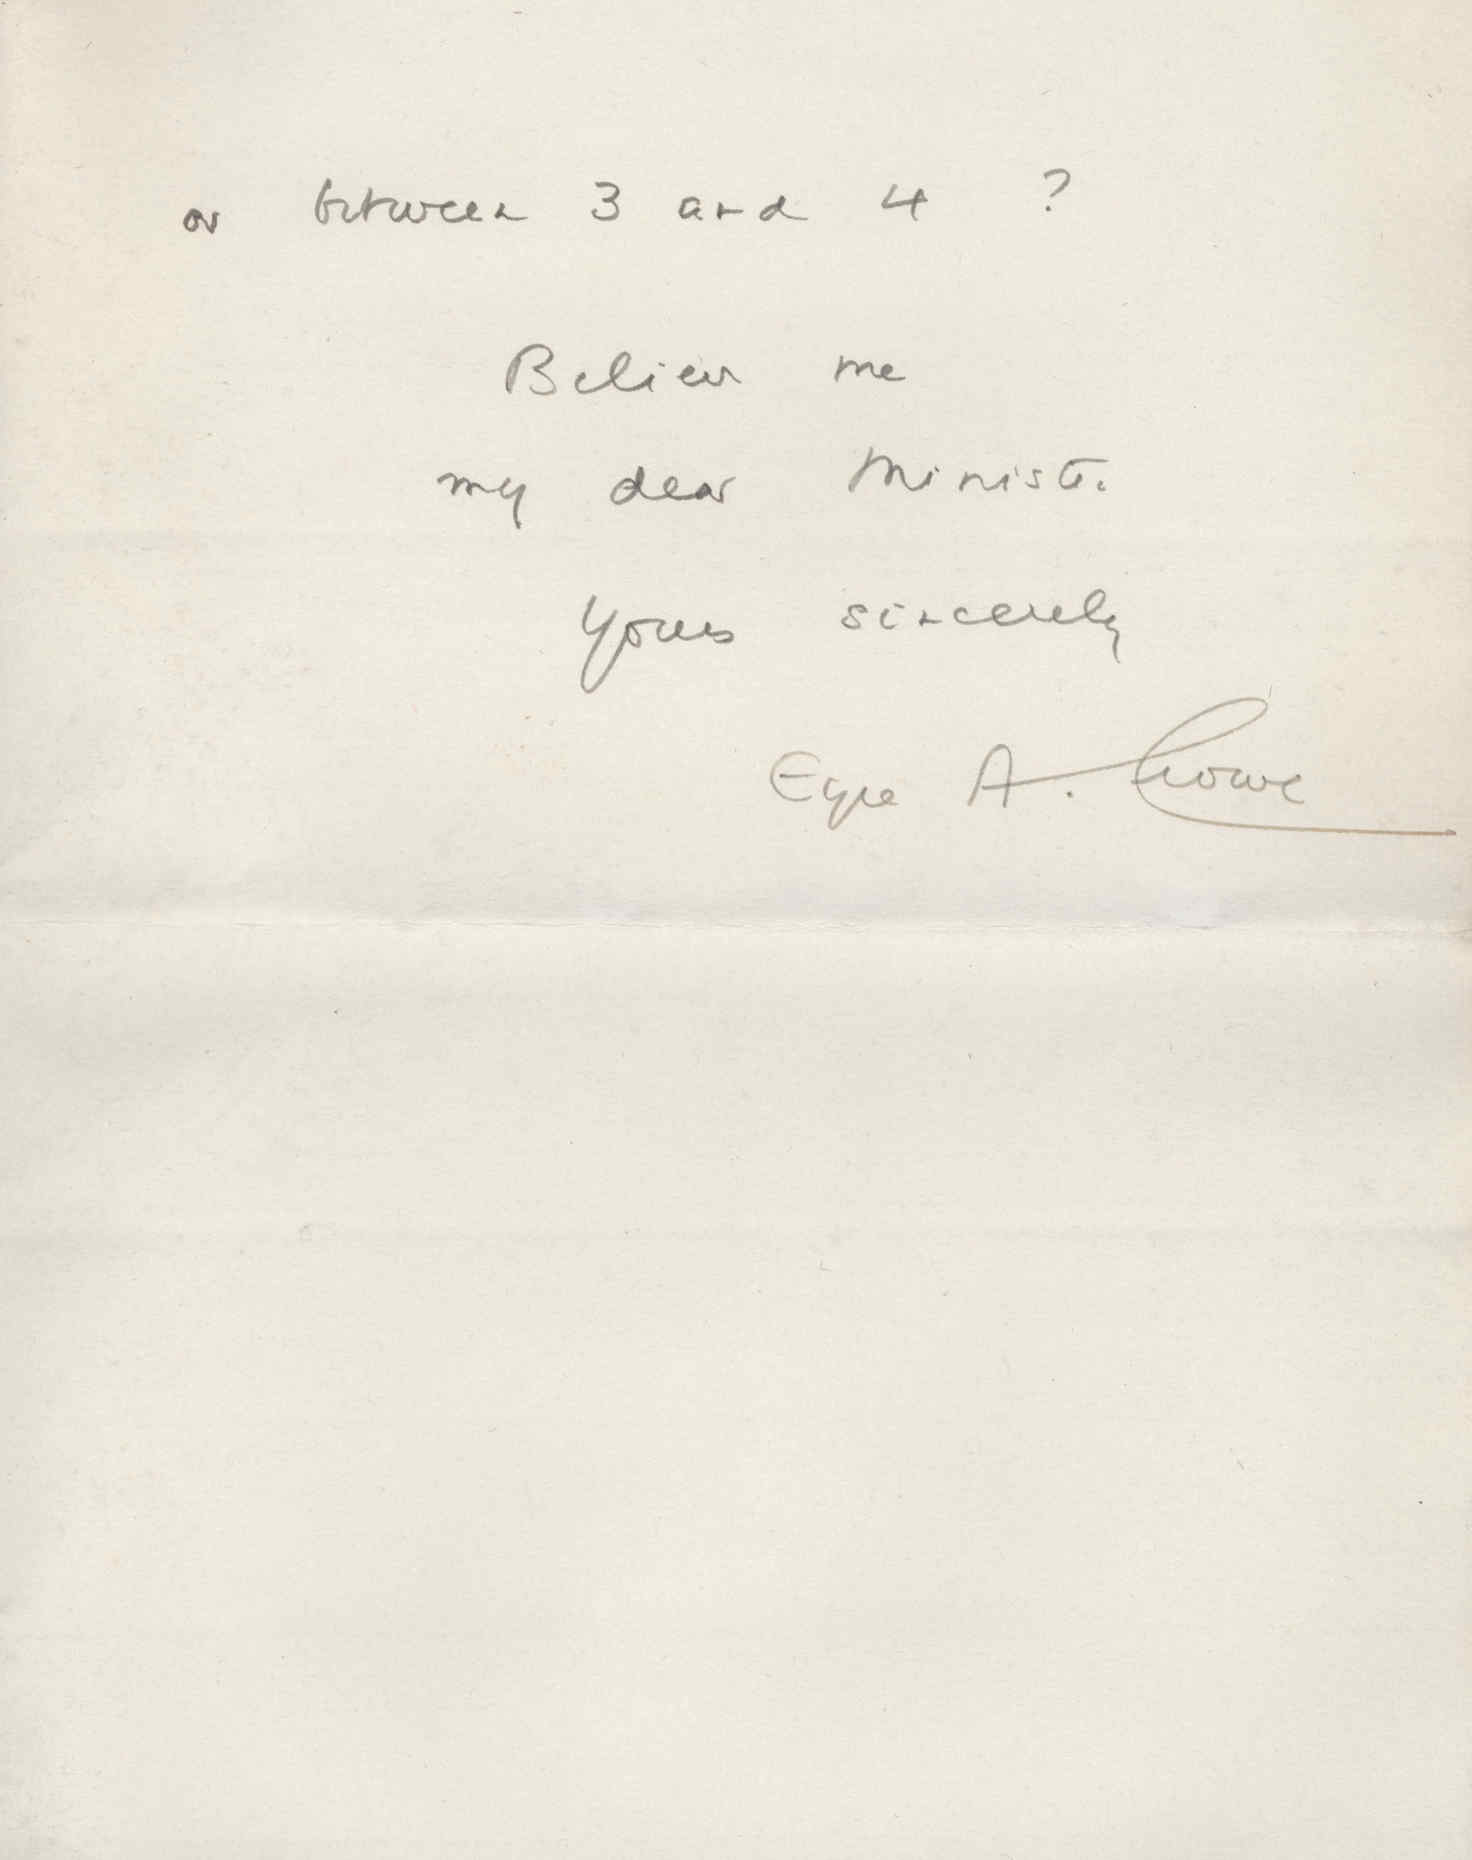 or between 3 and 4 ?
Believe me
my dear Minister
Yours sincerely
Eyre A. Crowe